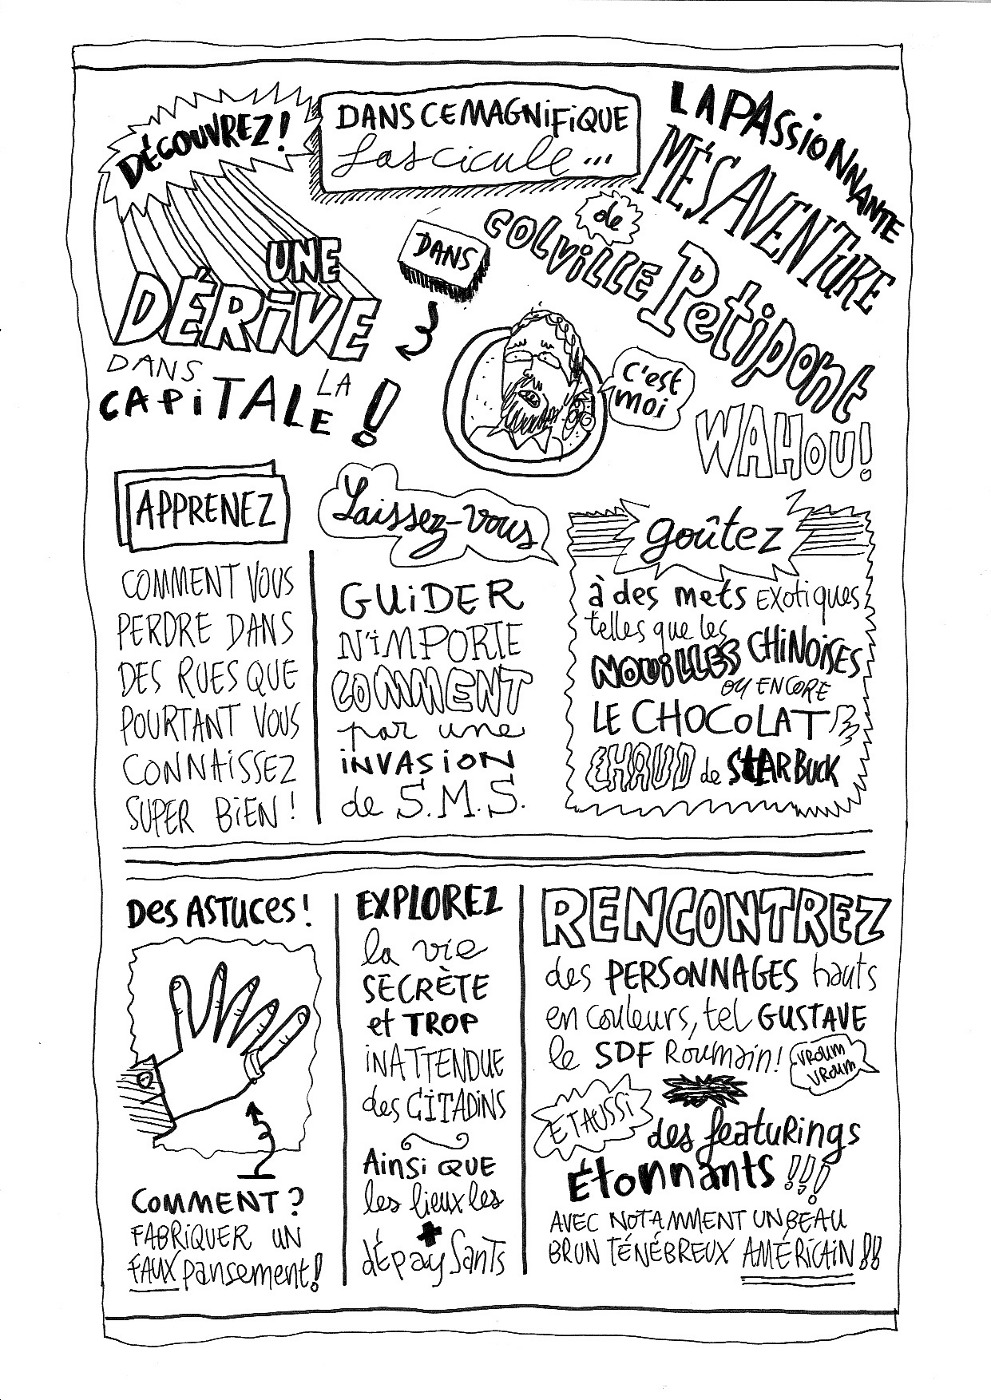 DÉCOUVREZ!
DANS CE MAGNIFIQUE
fascicule...
LA PASSIONNANTE
MÉSAVENTURE
de
COLVILLE
Petipont
WAHOU!
UNE
DÉRIVE
DANS
LA
CAPITALE!
DANS
C'est
moi
APPRENEZ
COMMENT VOUS
PERDRE DANS
DES RUES QUE
POURTANT VOUS
CONNAISSEZ
SUPER BIEN!
Laissez-vous
GUIDER
N'IMPORTE
COMMENT
par une
INVASION
de S.M.S.
goûtez
à des mets exotiques
telles que les
NOUILLES CHINOISES
OU ENCORE
LE CHOCOLAT
CHAUD de STARBUCK
Des ASTUCES!
COMMENT?
FABRIQUER UN
FAUX pansement!
EXPLOREZ
la vie
SECRÈTE
et TROP
INATTENDUE
des CITADINS
AINSI QUE
les lieux les
+
dépaysants
RENCONTREZ
des PERSONNAGES hauts
en couleurs, tel GUSTAVE
le SDF Roumain!
VROUM
VROUM
ET AUSSI
des featurings
Étonnants !!!
AVEC NOTAMMENT UN BEAU
BRUN TÉNÉBREUX AMÉRICAIN!!